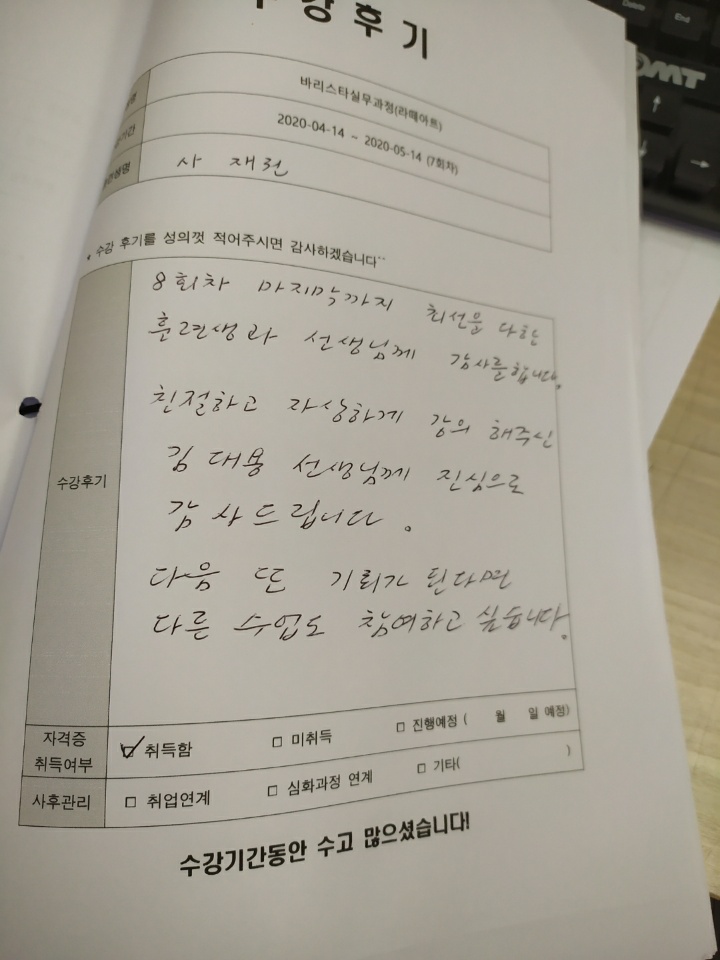 수강후기
바리스타실무과정(라떼아트)
2020-04-14 ~ 2020-05-14 (7회차)
사 재원
* 수강 후기를 성의껏 적어주시면 감사하겠습니다^^
수강후기
8회차 마지막까지 최선을 다한
훈련생과 선생님께 감사를 합니다.
친절하고 자상하게 강의 해주신
김대용 선생님께 진심으로
감사드립니다.
다음 또 기회가 된다면
다른 수업도 참여하고 싶습니다.
자격증 취득여부 ☑ 취득함 □ 미취득 □ 진행예정 ( 월 일 예정)
사후관리 □ 취업연계 □ 심화과정 연계 □ 기타( )
수강기간동안 수고 많으셨습니다!
Delete End